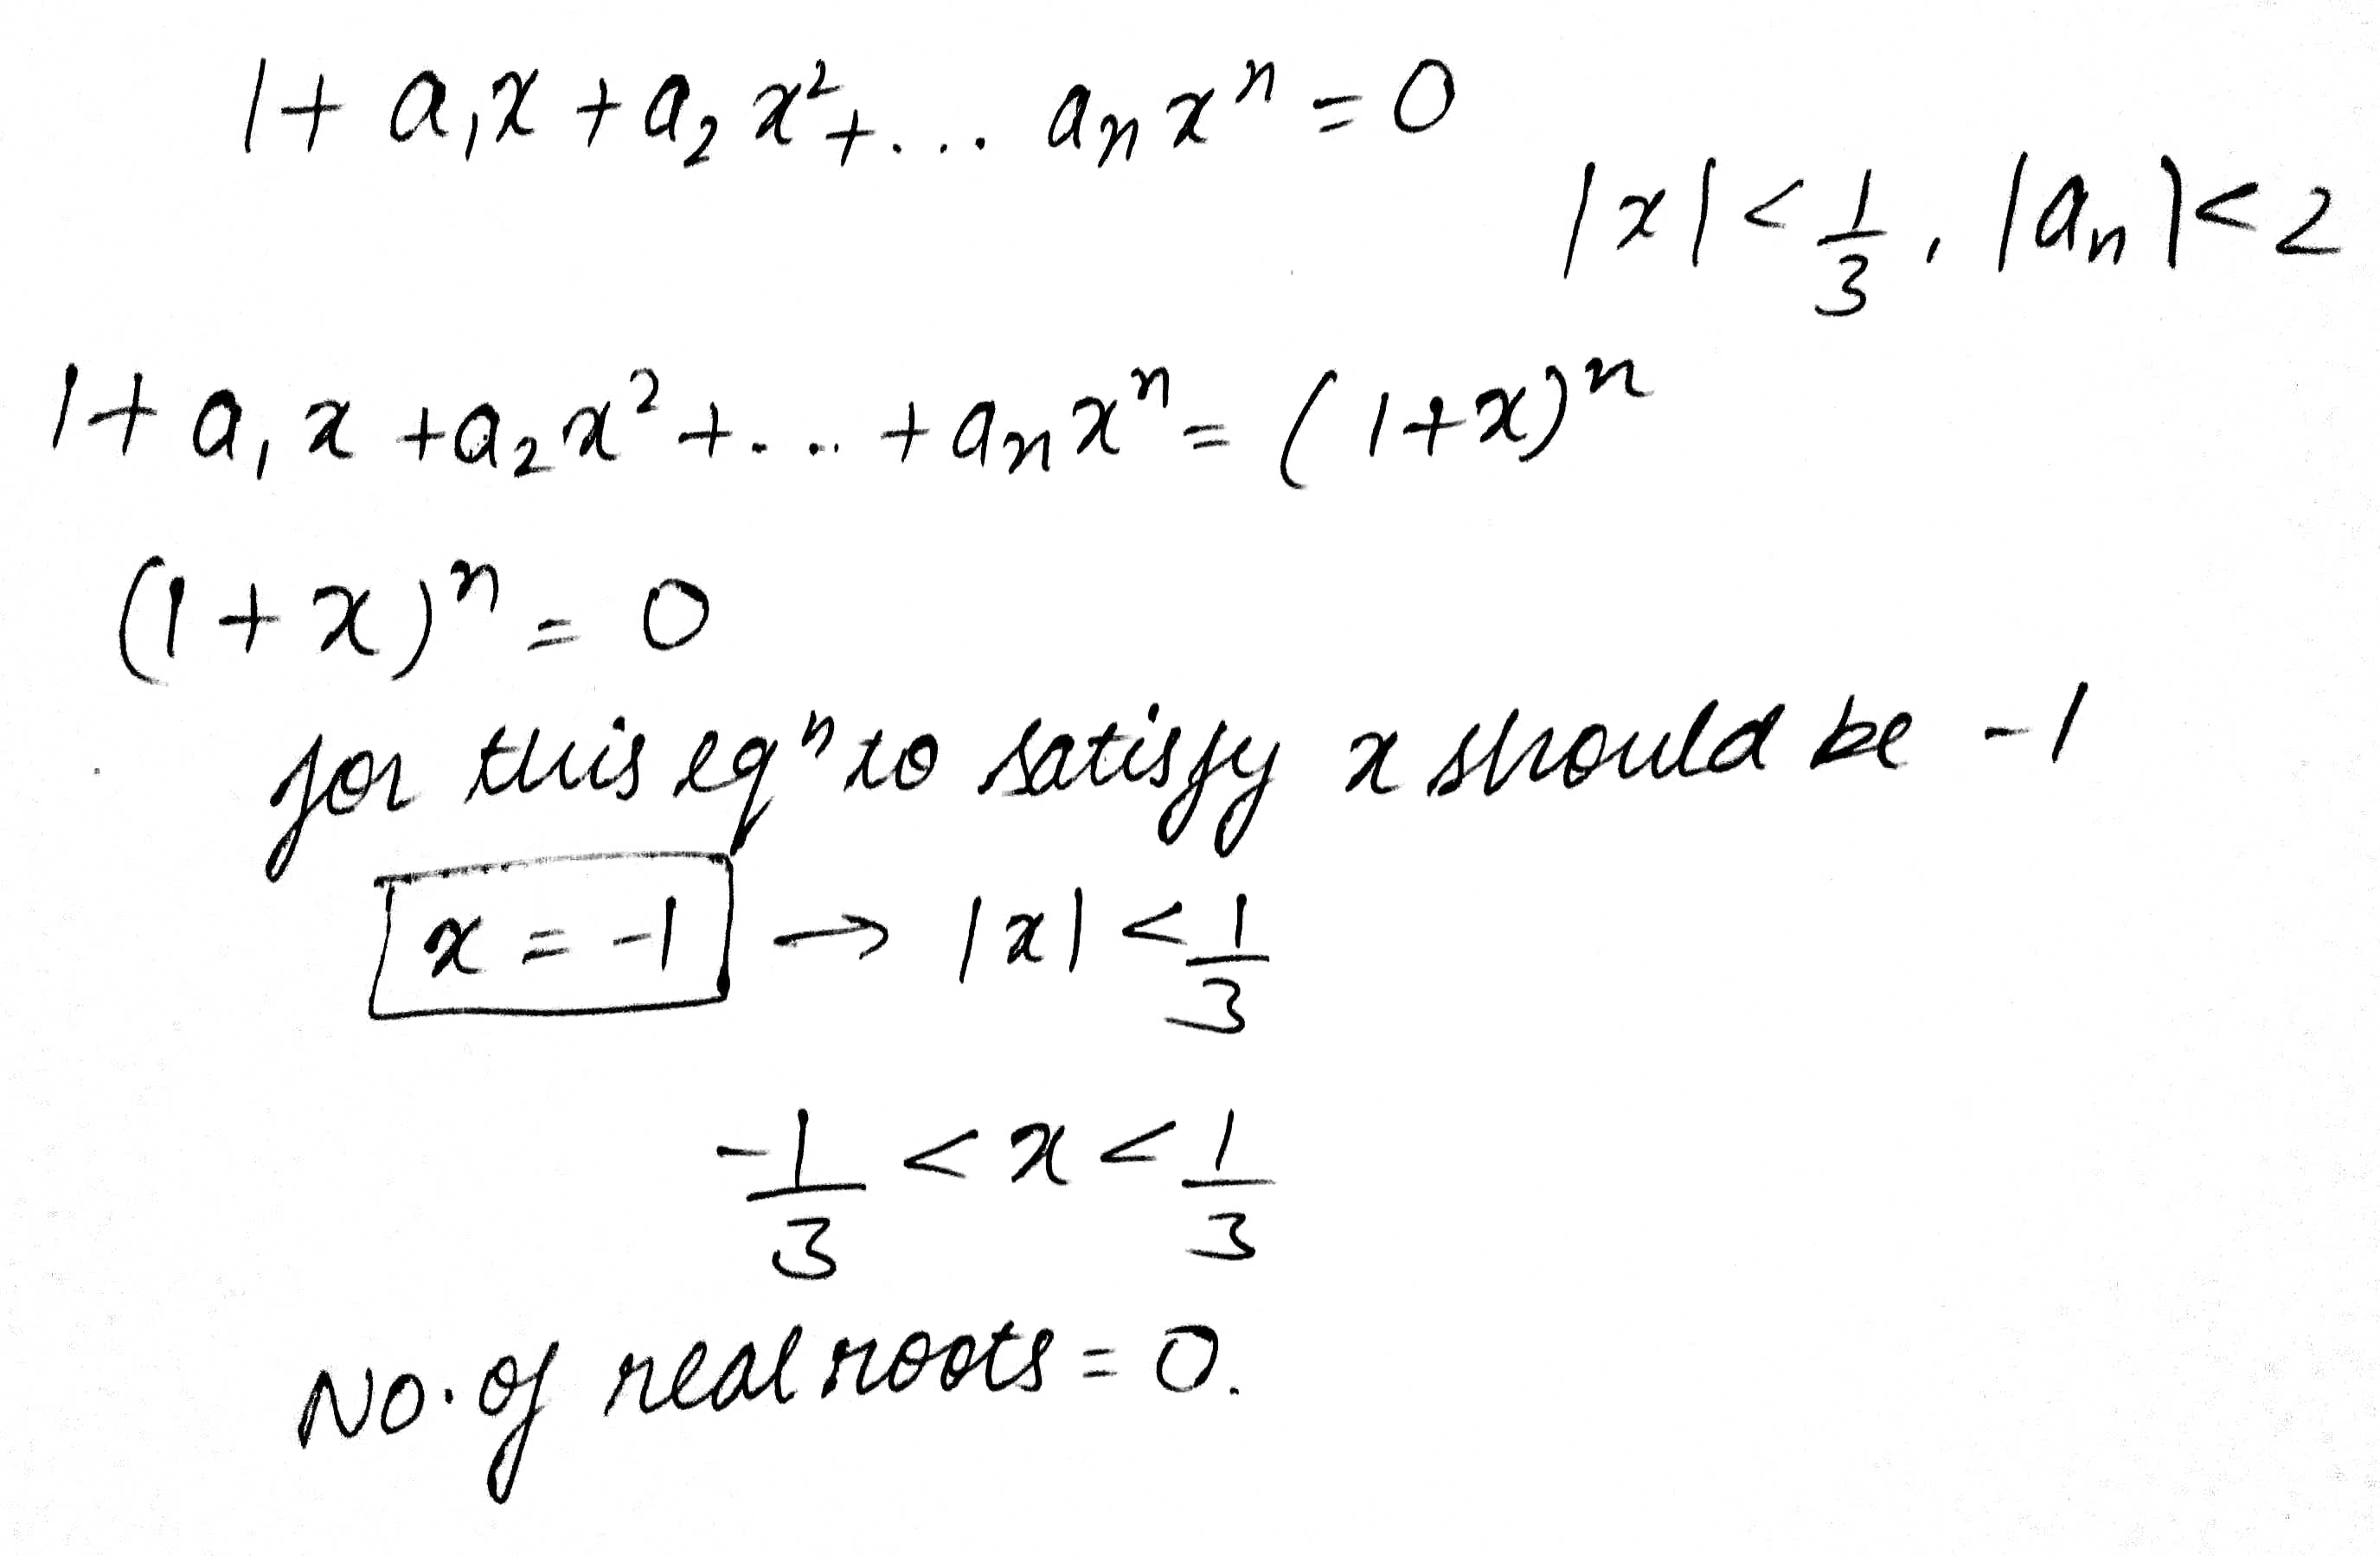 1 + a₁x + a₂x² + ... aₙxⁿ = 0
|x| < 1/3, |aₙ| < 2
1 + a₁x + a₂x² + ... + aₙxⁿ = (1+x)ⁿ
(1+x)ⁿ = 0
for this eqⁿ to satisfy x should be -1
x = -1 → |x| < 1/3
-1/3 < x < 1/3
No. of real roots = 0.